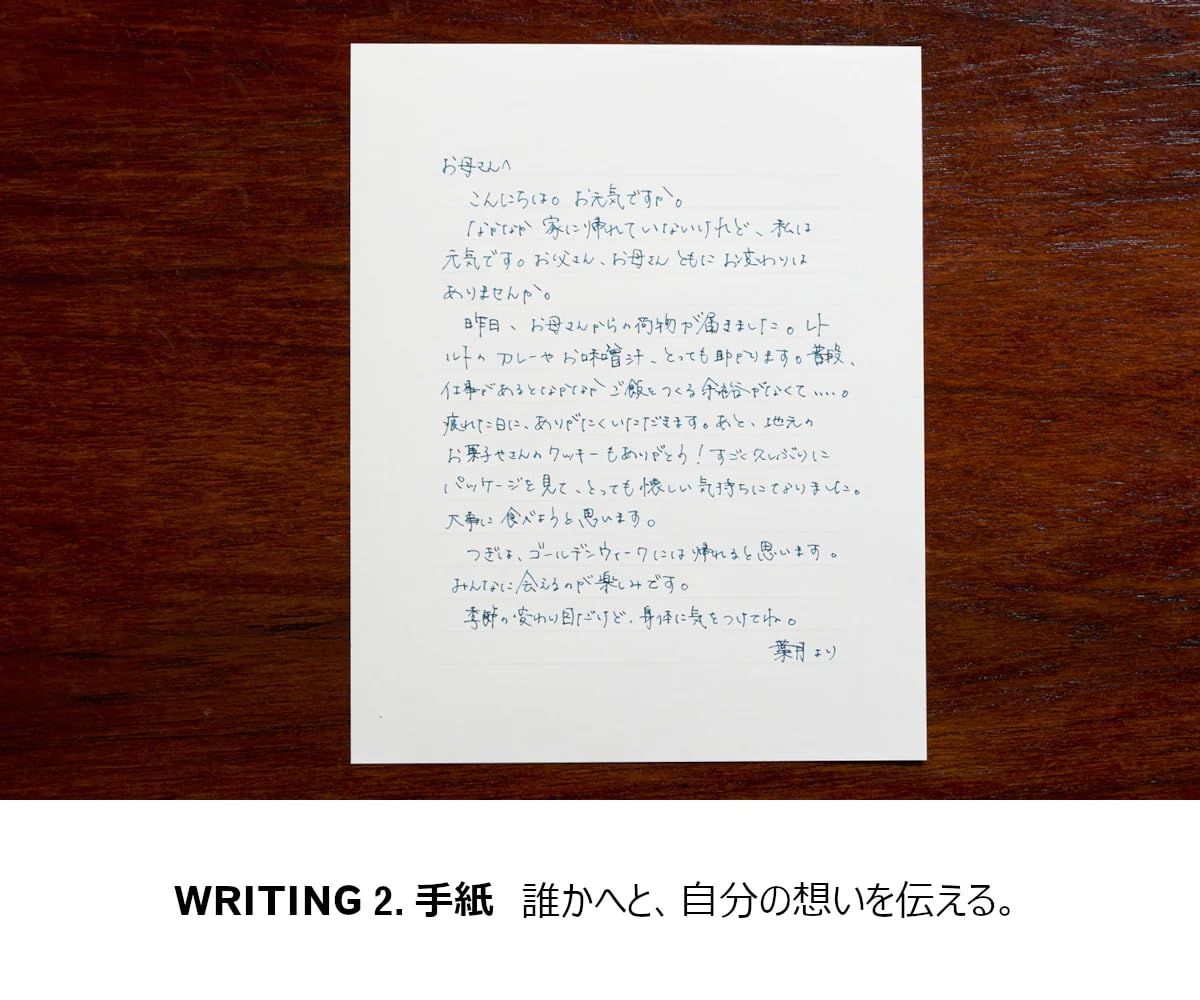 お母さんへ
こんにちは。お元気ですか。
なかなか家に帰れていないけれど、私は
元気です。お父さん、お母さんともにお変わりは
ありませんか。
昨日、お母さんからの荷物が届きました。レト
ルトのカレーやお味噌汁、とっても助かります。普段、
仕事があるとなかなかご飯をつくる余裕がなくて‥‥。
疲れた日に、ありがたくいただきます。あと、地元の
お菓子やさんのクッキーもありがとう!すごく久しぶりに
パッケージを見て、とっても懐しい気持ちになりました。
大事に食べようと思います。
つぎは、ゴールデンウィークには帰れると思います。
みんなに会えるのが楽しみです。
季節の変わり目だけど、身体に気をつけてね。
葉月より
WRITING 2. 手紙 誰かへと、自分の想いを伝える。